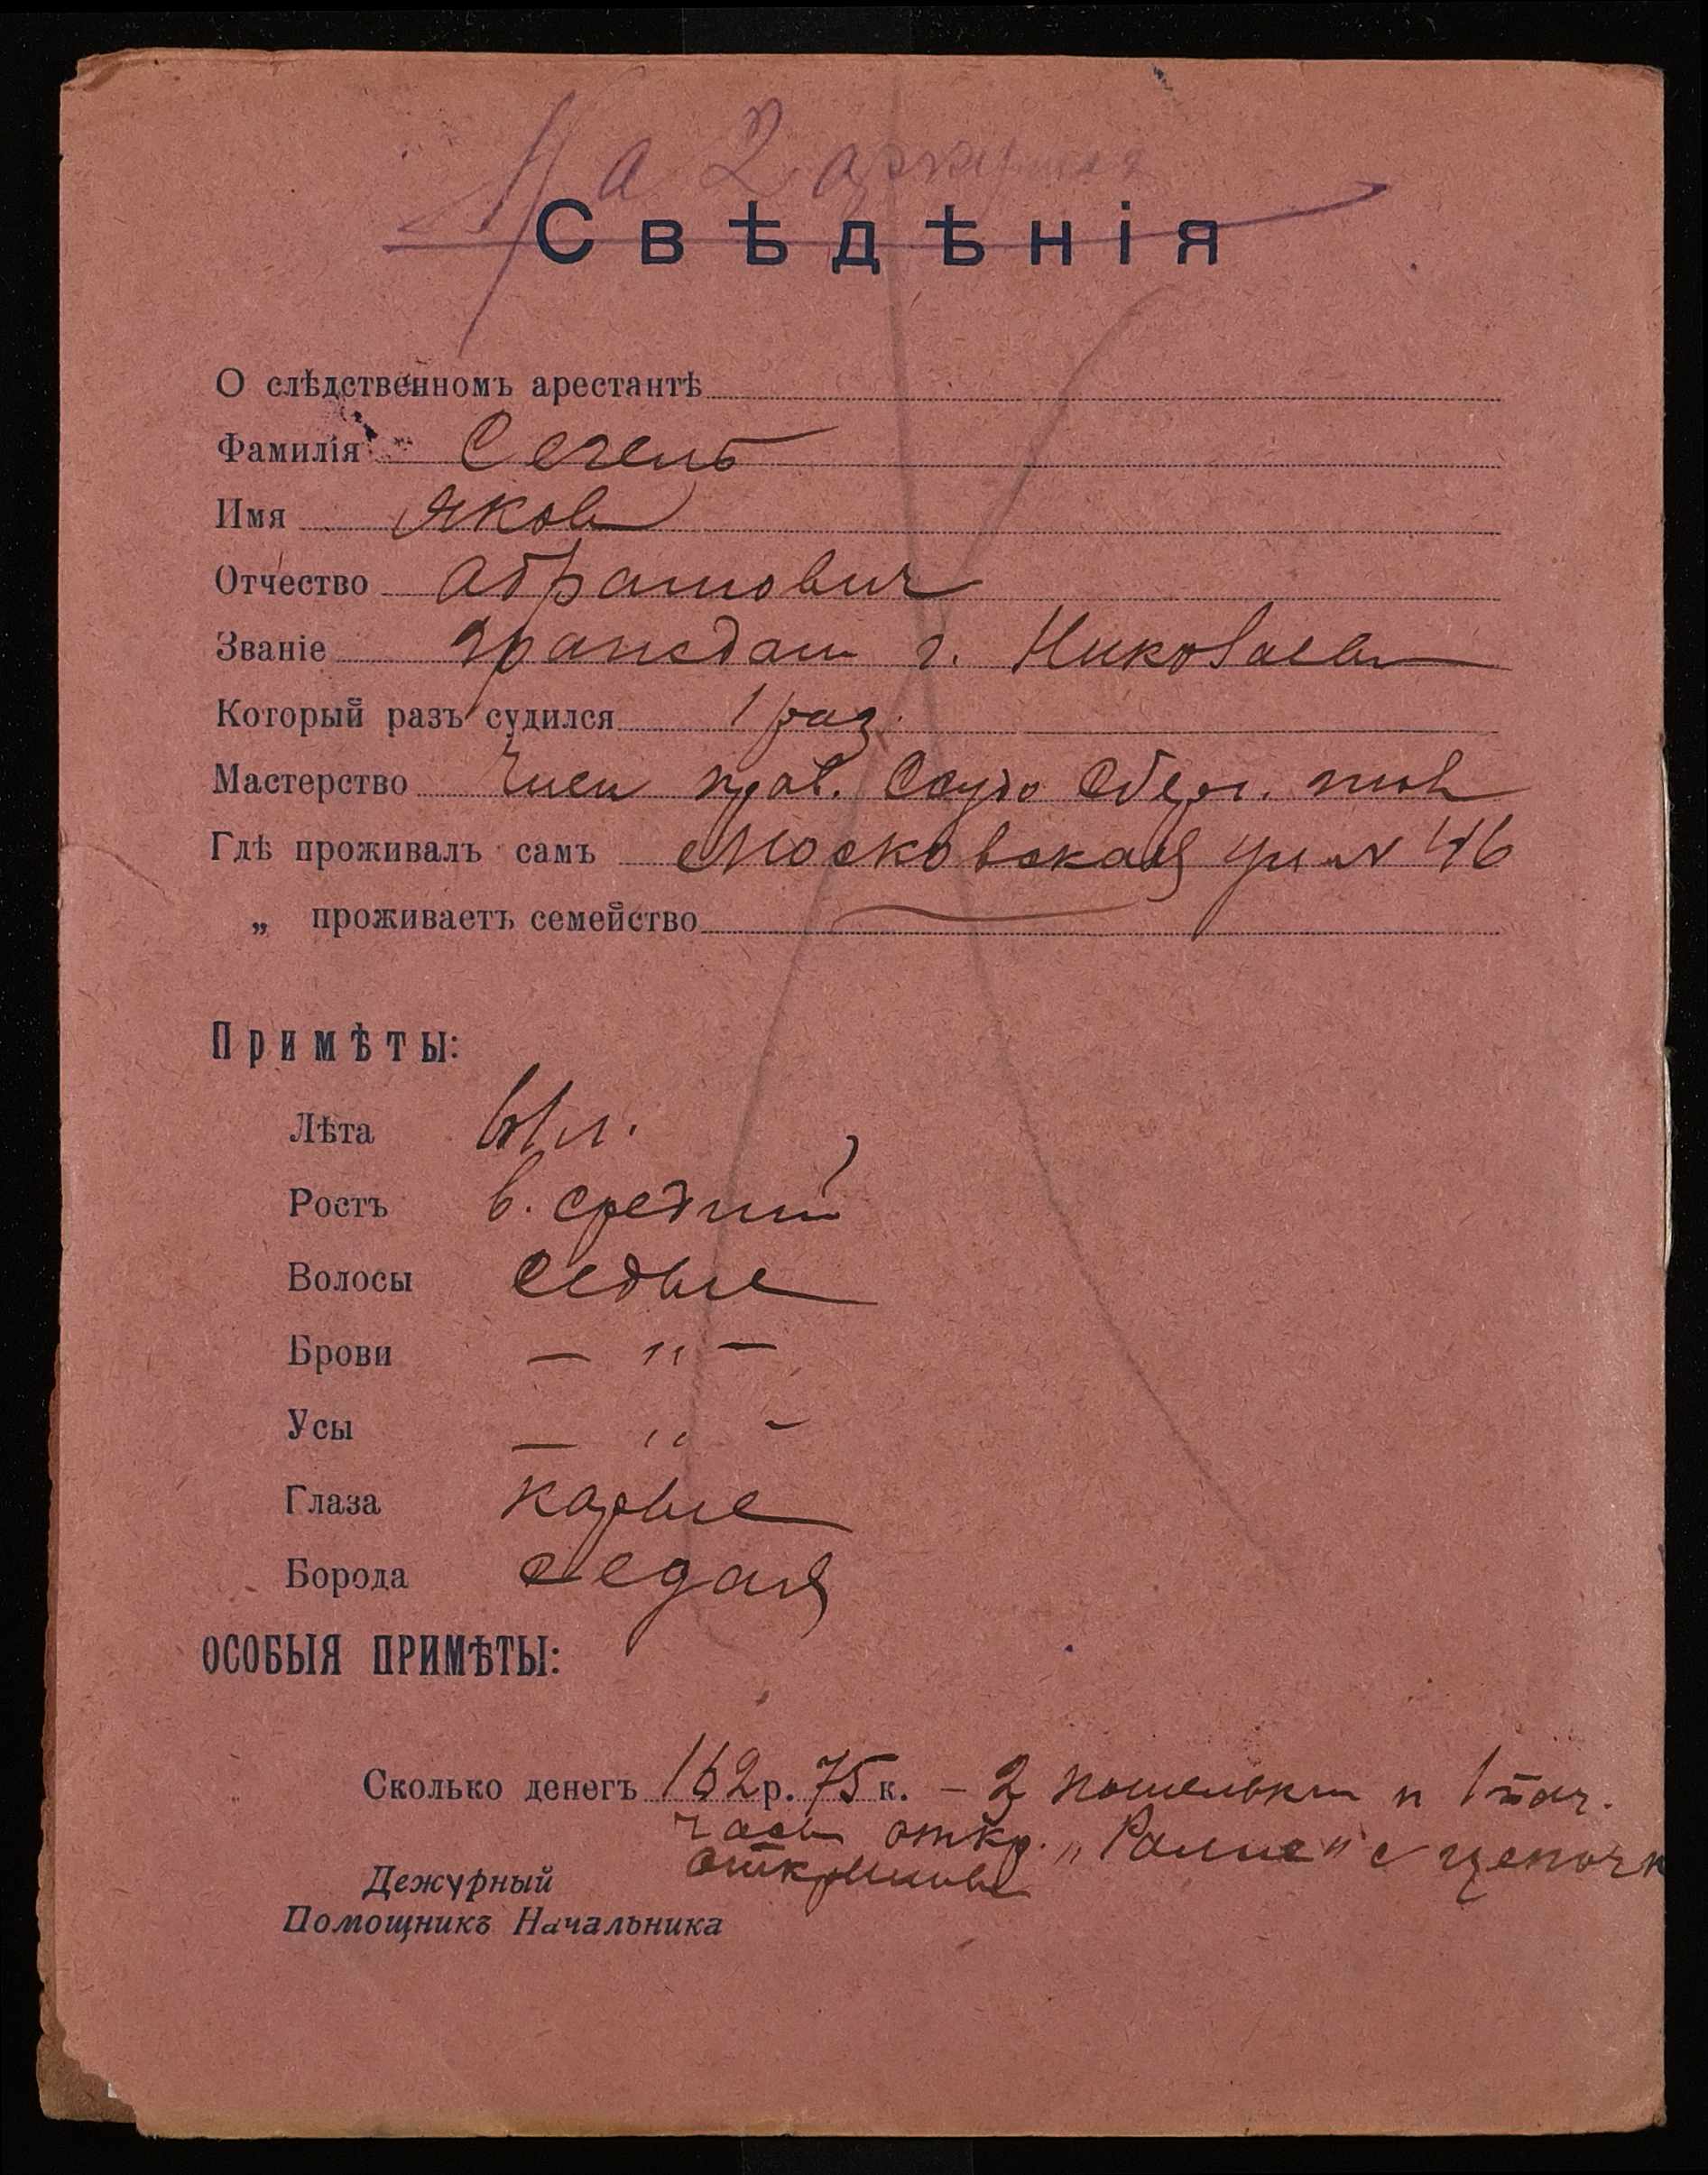 На 2 аркушах
Свѣдѣнія
О слѣдственномъ арестантѣ
Фамилія Сегень
Имя Яков
Отчество Абрамович
Званіе граждан г. Николаева
Который разъ судился 1 раз.
Мастерство Член прав. Ссудо Сбер. тов
Гдѣ проживалъ самъ Московская ул № 46
„ проживаетъ семейство
Примѣты:
Лѣта 61 л.
Ростъ в. средний
Волосы седые
Брови — " —
Усы — " —
Глаза карые
Борода седая
ОСОБЫЯ ПРИМѢТЫ:
Сколько денегъ 162 р. 75 к. – 2 кошелька и 1
часы откр. „ " с цепочк
Дежурный
Помощникъ Начальника